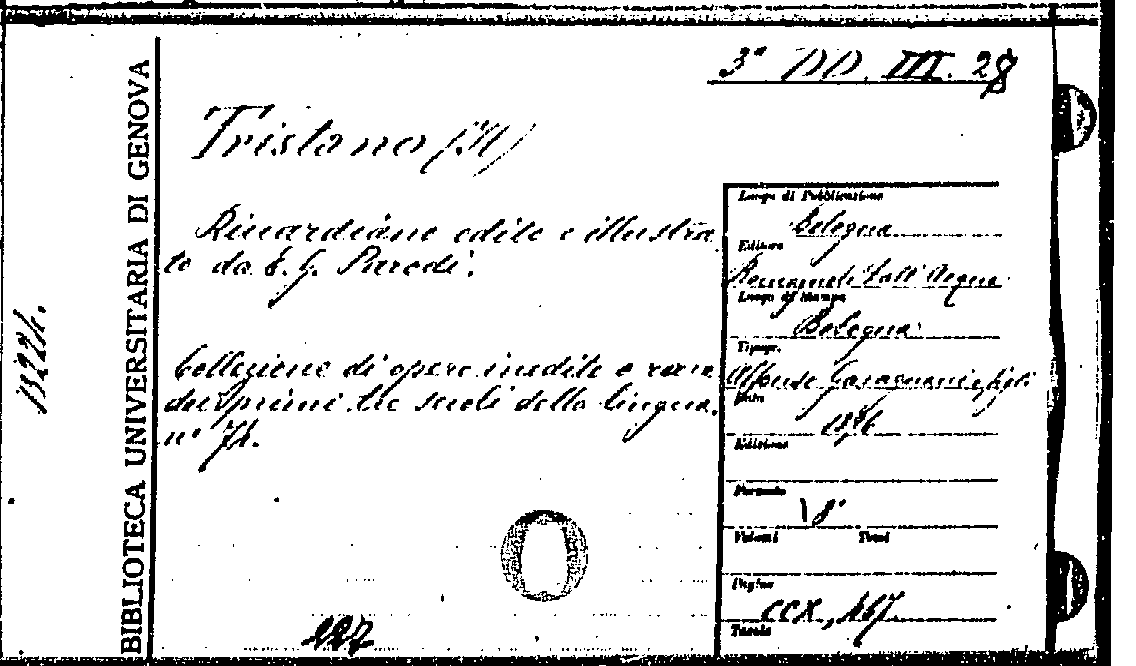 3ª DD. III. 28
Tristano (Il)
Riccardiano edito e illustra
to da E. G. Parodi.
Collezione di opere inedite o rare
dei primi tre secoli della lingua,
nº 74.
BIBLIOTECA UNIVERSITARIA DI GENOVA
Luogo di Pubblicazione
Bologna
Editore
Romagnoli Dall'Acqua
Luogo di Stampa
Bologna
Tipogr.
Alfonso Garagnani e figli
Data
1896
Edizione
Formato
8º
Volumi Tomi
Pagine
CCX,
Tavole
127